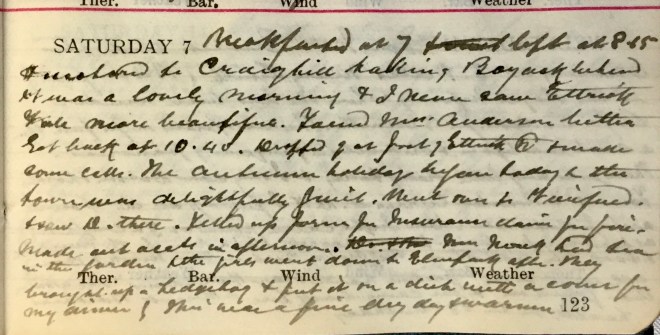 Ther. Bar. Wind Weather
SATURDAY 7 Breakfasted at 7 & left at 8.15
& motored to Craighill taking Boyack behind
It was a lovely morning & I never saw Ettrick
Vale more beautiful. Found Mrs Anderson better
Got back at 10.40. Dropped at foot of Ettrick & made
some calls. The autumn holidays began today & the
town was delightfully quiet. Went over to
& saw D. there. Filled up form for Insurance claim for fire.
Made out accts in afternoon. Mrs Monk had tea
in the garden & the girls went down to Elmpark after. They
Ther. Bar. Wind Weather
brought up a hedgehog & put it on a dish with a cover for
my dinner! This was a fine dry day & warm 123